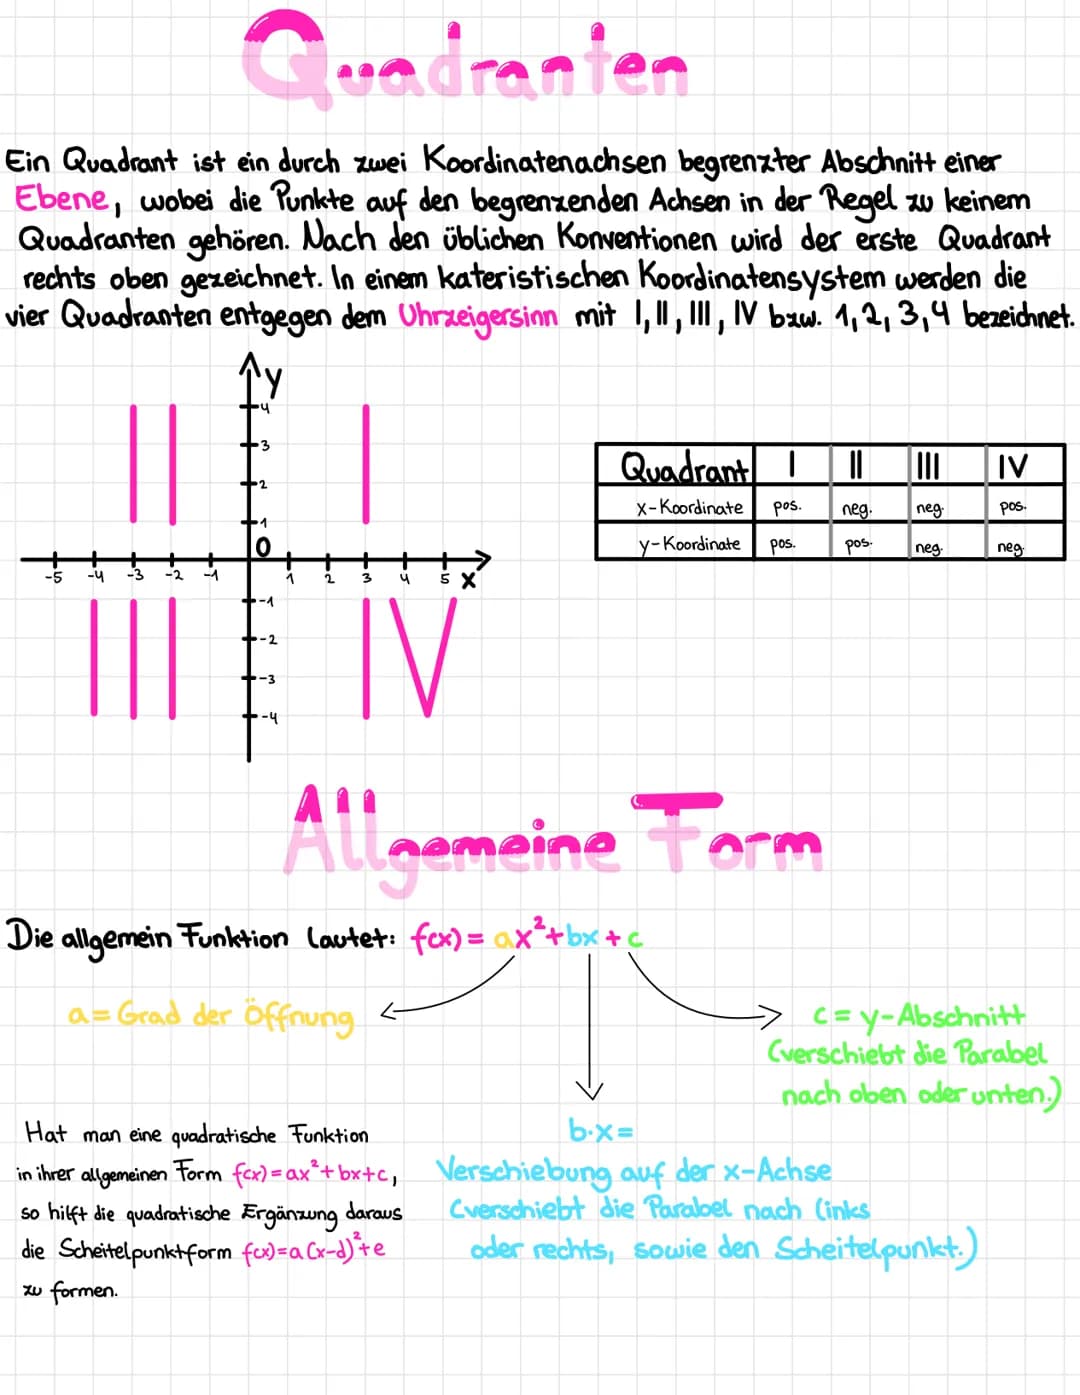 Quadranten
Ein Quadrant ist ein durch zwei Koordinatenachsen begrenzter Abschnitt einer
Ebene, wobei die Punkte auf den begrenzenden Achsen in der Regel zu keinem
Quadranten gehören. Nach den üblichen Konventionen wird der erste Quadrant
rechts oben gezeichnet. In einem kateristischen Koordinatensystem werden die
vier Quadranten entgegen dem Uhrzeigersinn mit I, II, III, IV bzw. 1, 2, 3, 4 bezeichnet.
y
4
3
2
1
0
-5 -4 -3 -2 -1 1 2 3 4 5 x
-1
-2
-3
-4
II I
III IV
Quadrant I II III IV
x-Koordinate pos. neg. neg. pos.
y-Koordinate pos. pos. neg. neg.
Allgemeine Form
Die allgemein Funktion lautet: f(x) = ax²+bx+c
a = Grad der Öffnung
c = y-Abschnitt
(verschiebt die Parabel
nach oben oder unten.)
b·x=
Verschiebung auf der x-Achse
(verschiebt die Parabel nach links
oder rechts, sowie den Scheitelpunkt.)
Hat man eine quadratische Funktion
in ihrer allgemeinen Form f(x)=ax²+bx+c,
so hilft die quadratische Ergänzung daraus
die Scheitelpunktform f(x)=a(x-d)²+e
zu formen.